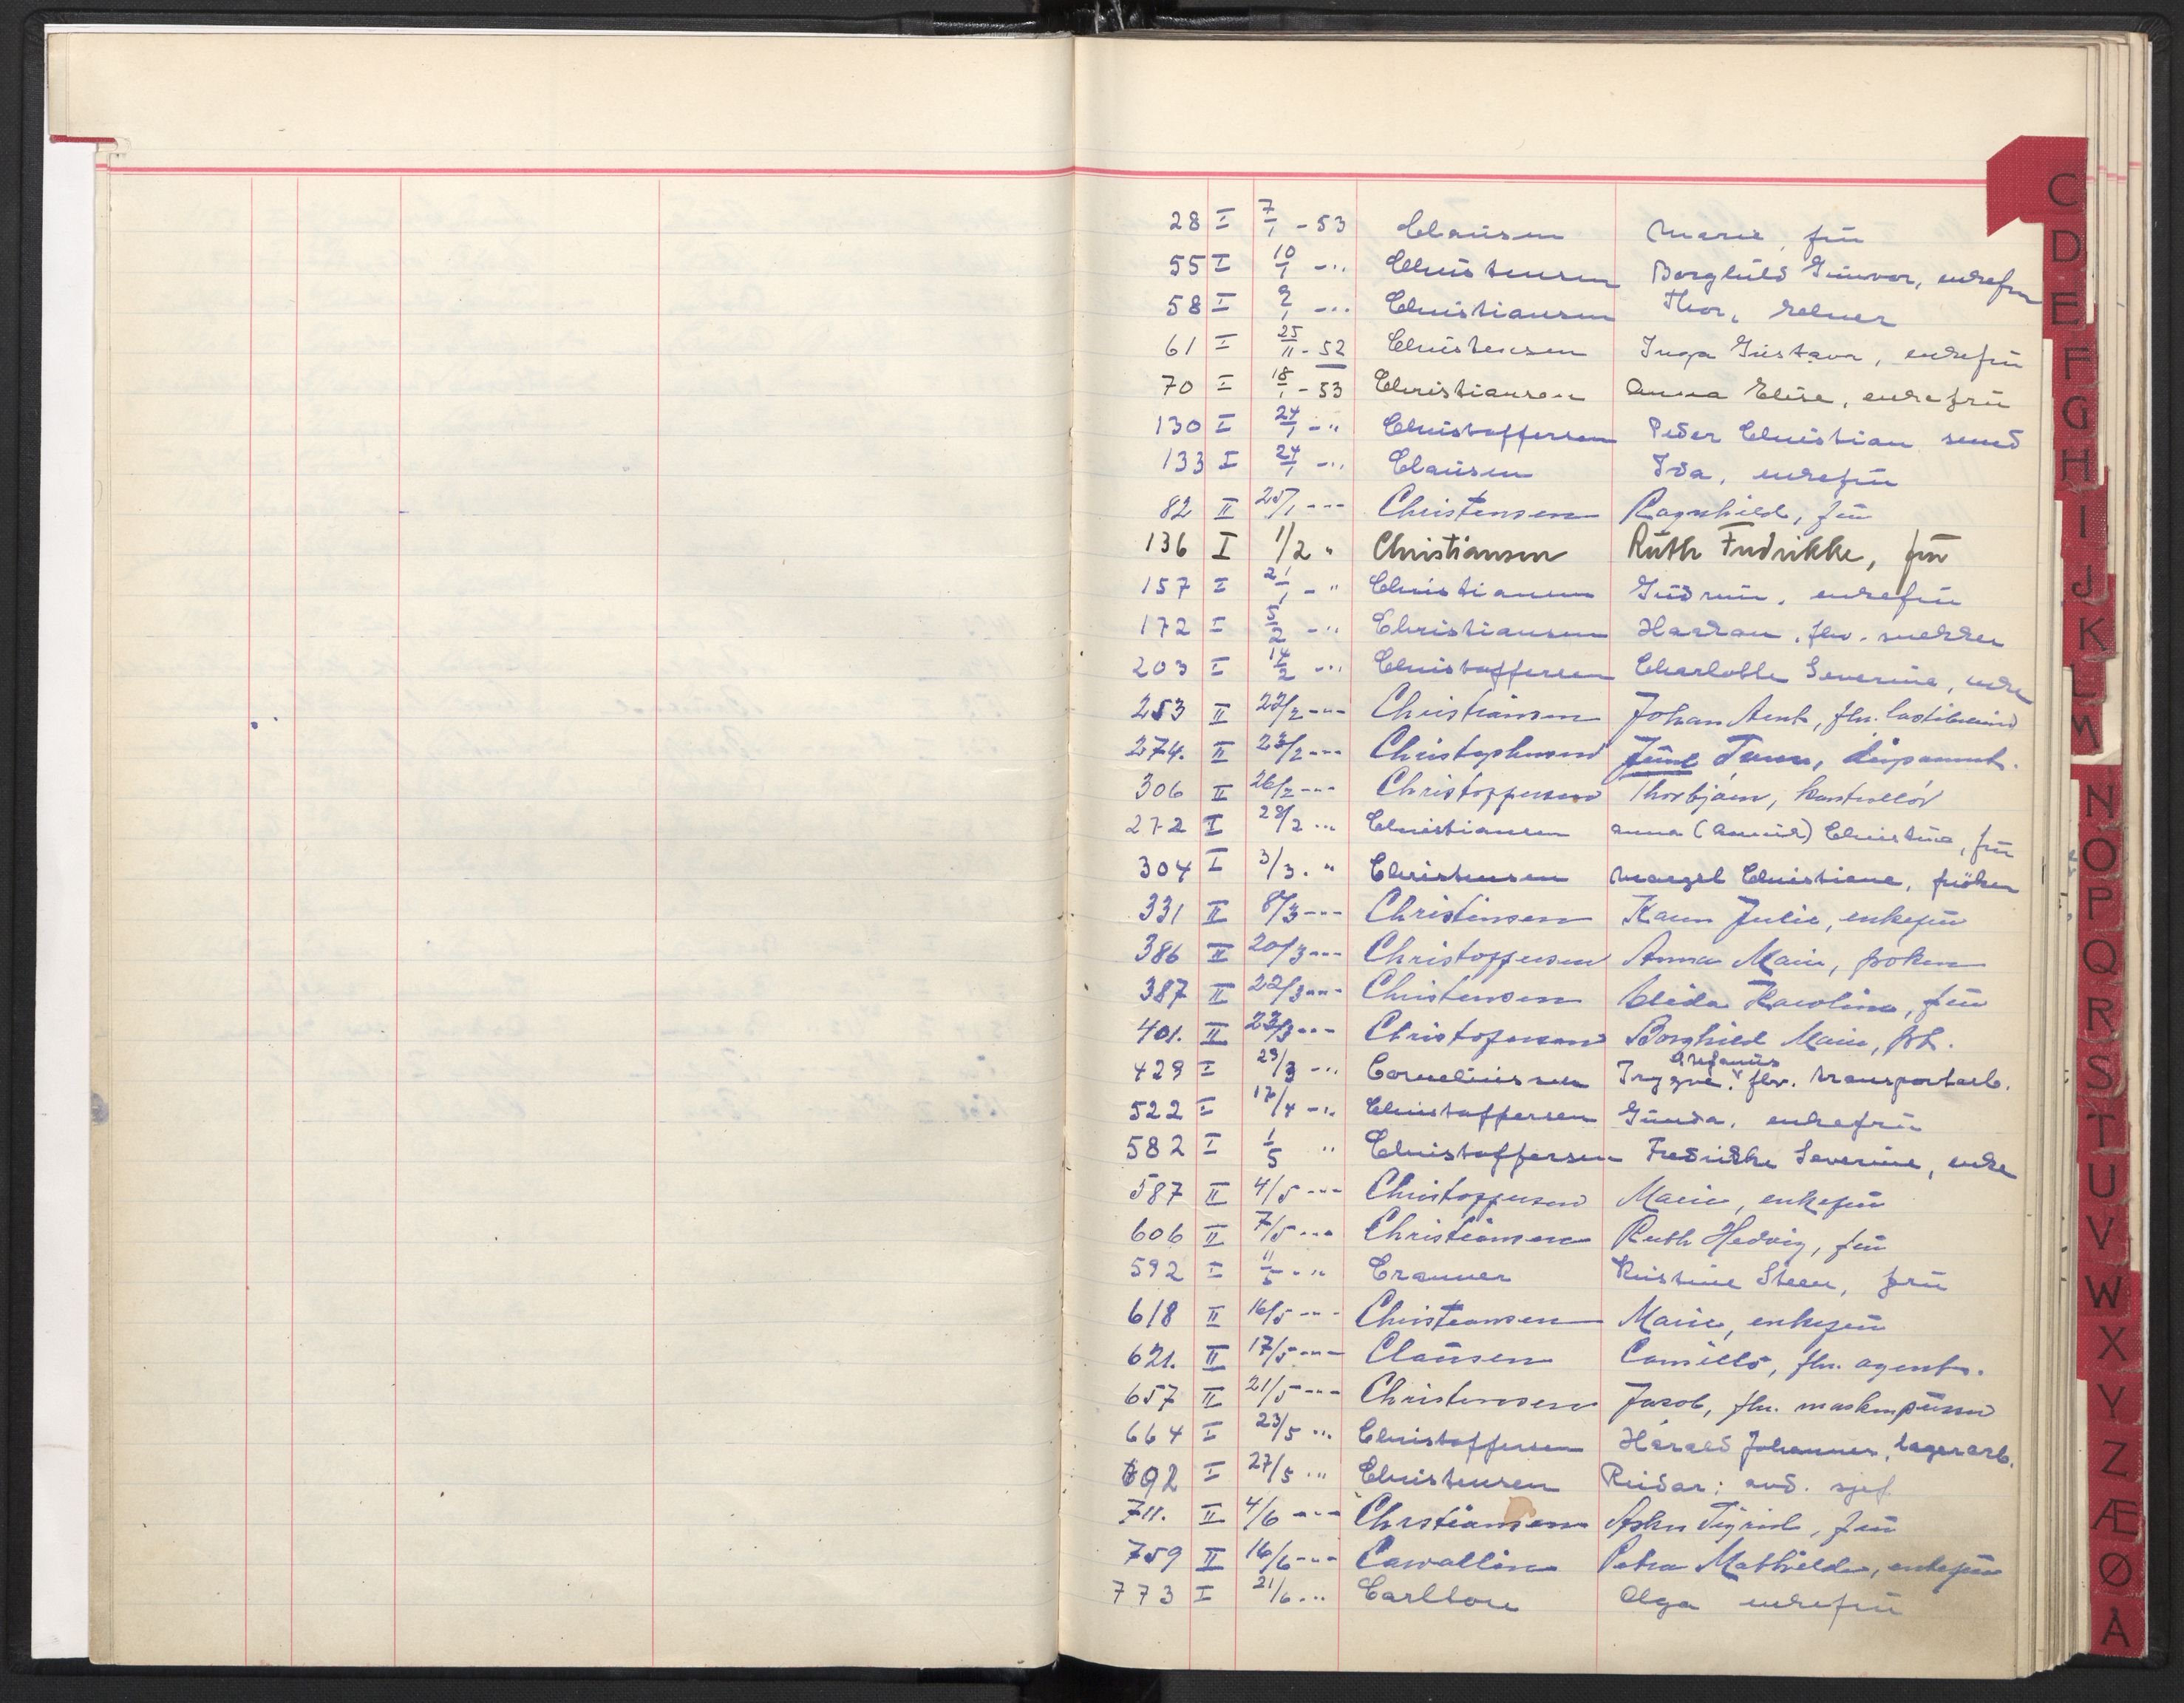 28 I 7/1 - 53 Clausen Marie, frü
55 I 10/1 - " Christensen Borghild Günvor, enkefrü
58 I 9/1 - " Christiansen Thor, kelner
61 I 25/11 - 52 Christensen Inga Güstava, enkefrü
70 I 18/1 - 53 Christiansen Anna Elise, enkefrü
130 I 24/1 - " Christoffersen Peder Christian smed
133 I 24/1 - " Clausen Ida, enkefrü
82 II 25/1 - " - Christensen Ragnhild, frü
136 I 1/2 " Christiansen Rüth Fredrikke, frü
157 I 21/1 - " Christiansen Güdrün, enkefrü
172 I 5/2 - " Christiansen Haakon, fhv. snekker
203 I 14/2 - " Christoffersen Charlotte Severine, enke
253 II 22/2 - " - Christiansen Johan Arnt, fhv.
274. II 23/2 - " - Christophersen
306 II 26/2 - " - Christoffersen Thorbjørn, kontrollør
272 I 28/2 " Christiansen Anna ( ) Christine, frü
304 I 3/3 . " Christensen Margel Christiane, frøken
331 II 8/3 - " - Christensen Karen Julie, enkefrü
386 II 20/3 - " - Christoffersen Anna Marie, frøken
387 II 22/3 - " - Christensen Karoline, frü
401. II 23/3 - " - Christofersen Borghild Marie, frk.
429 I 29/3 - " Corneliussen Trygve Stefanüs fhv. transportarb.
522 I 17/4 - " Christoffersen Günda, enkefrü
582 I 1/5 " Christoffersen Fredrikke Severine, enke
587 II 4/5 - " - Christoffersen Marie, enkefrü
606 II 7/5 - " - Christiansen Ruth Hedvig, frü
592 I 11/5 - " Cranner Kristine Steen, frü
618 II 16/5 - " - Christiansen Marie, enkefrü
621. II 17/5 - " - Claüsen Camillo, fhv. agent.
657 II 21/5 - " - Christensen Jacob, fhv.
664 I 23/5 " Christoffersen Harald Johannes, lagerarb.
692 I 27/5 " Christensen Reidar; avd. sjef
711. II 4/6 - " - Chrstiansen Sigrid, frü
759 II 16/6 - " - Cawallin Petra Mathilde, enkefrü
773 I 21/6 " Carlton Olga enkefrü
C
D
E
F
G
H
I
J
K
L
M
N
O
P
Q
R
S
T
U
V
W
X
Y
Z
Æ
Ø
A